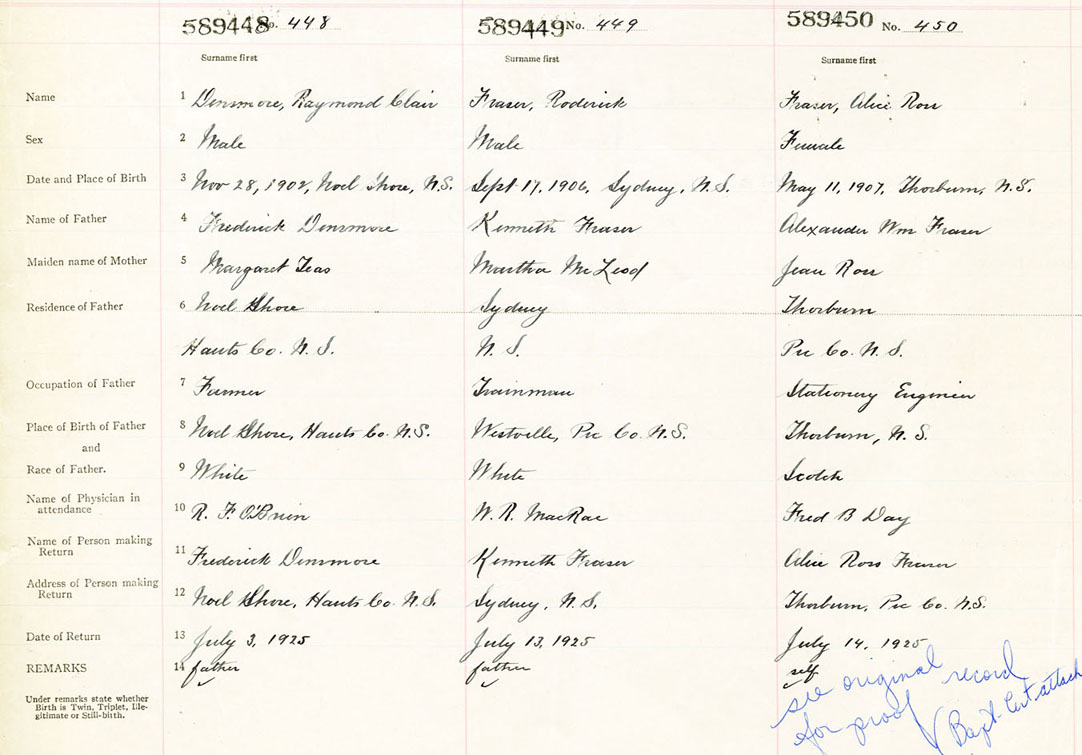 589448 No. 448 589449 No. 449 589450 No. 450
Surname first Surname first Surname first
Name 1 Densmore, Raymond Clair Fraser, Roderick Fraser, Alice Ross
Sex 2 Male Male Female
Date and Place of Birth 3 Nov 28, 1902, Noel Shore, N.S. Sept 17, 1906, Sydney, N.S. May 11, 1907, Thorburn, N.S.
Name of Father 4 Frederick Densmore Kenneth Fraser Alexander Wm Fraser
Maiden name of Mother 5 Margaret Teas Martha McLeod Jean Ross
Residence of Father 6 Noel Shore Sydney Thorburn
Hants Co. N.S. N.S. Pic Co. N.S.
Occupation of Father 7 Farmer Trainman Stationery Engineer
Place of Birth of Father 8 Noel Shore, Hants Co. N.S. Westville, Pic Co. N.S. Thorburn, N.S.
and
Race of Father. 9 White White Scotch
Name of Physician in
attendance 10 R. F. O'Brien W. R. MacRae Fred B Day
Name of Person making
Return 11 Frederick Densmore Kenneth Fraser Alice Ross Fraser
Address of Person making
Return 12 Noel Shore, Hants Co. N.S. Sydney, N.S. Thorburn, Pic Co. N.S.
Date of Return 13 July 3, 1925 July 13, 1925 July 14, 1925
REMARKS 14 father father self
Under remarks state whether
Birth is Twin, Triplet, Ille-
gitimate or Still-birth.
see original record
for proof
Bapt. Cert attach